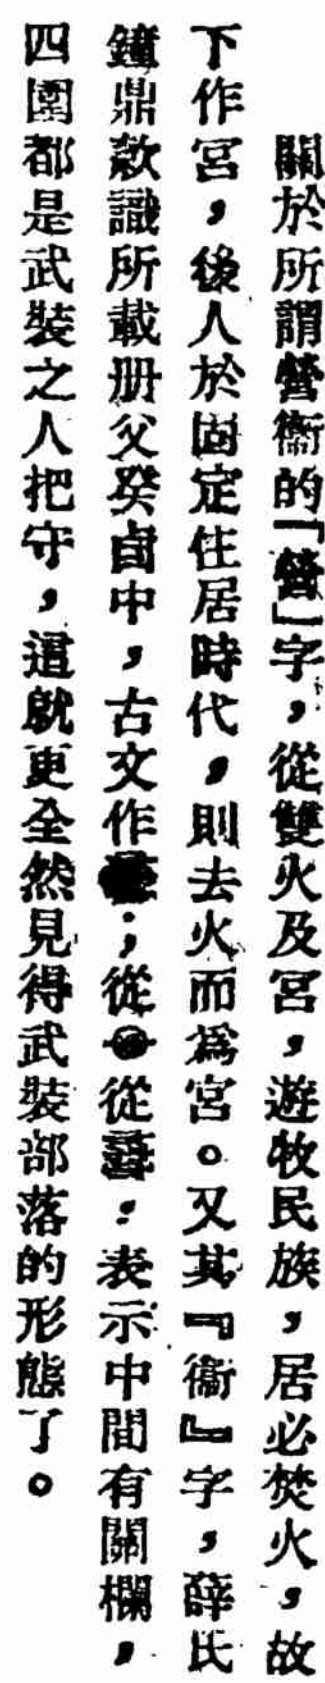 關於所謂營衞的「營」字，從雙火及宮，遊牧民族，居必焚火，故
下作宮，後人於固定住居時代，則去火而爲宮。又其『衞』字，薛氏
鐘鼎款識所載册父癸卣中，古文作；從從：表示中間有關欄，
四圍都是武裝之人把守，這就更全然見得武裝部落的形態了。